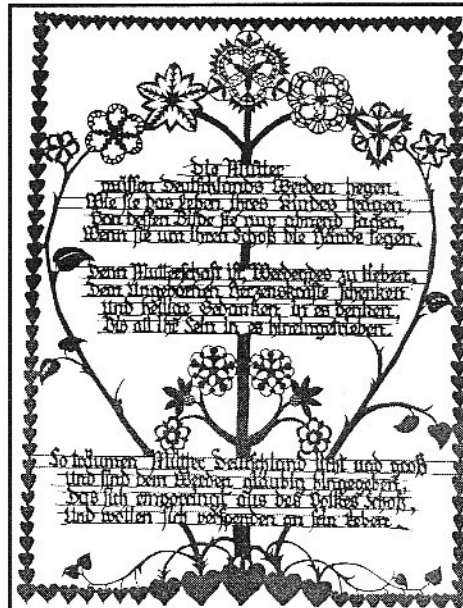 Die Mütter
müssen Deutschlands Werden hegen,
Wie sie das Leben ihres Kindes tragen,
Von dessen Bilde sie nur ahnend sagen,
Wenn sie um ihren Schoß die Hände legen.
Denn Mutterschaft ist, Werdendes zu lieben,
Dem Ungebornen Herzenskräfte schenken
Und heilige Gedanken in es denken
Bis all ihr Sein in es hineingetrieben.
So träumen Mütter Deutschland licht und groß
und sind dem Werden gläubig hingegeben,
Das sich emporringt aus des Volkes Schoß,
Und wollen sich an sein Leben.